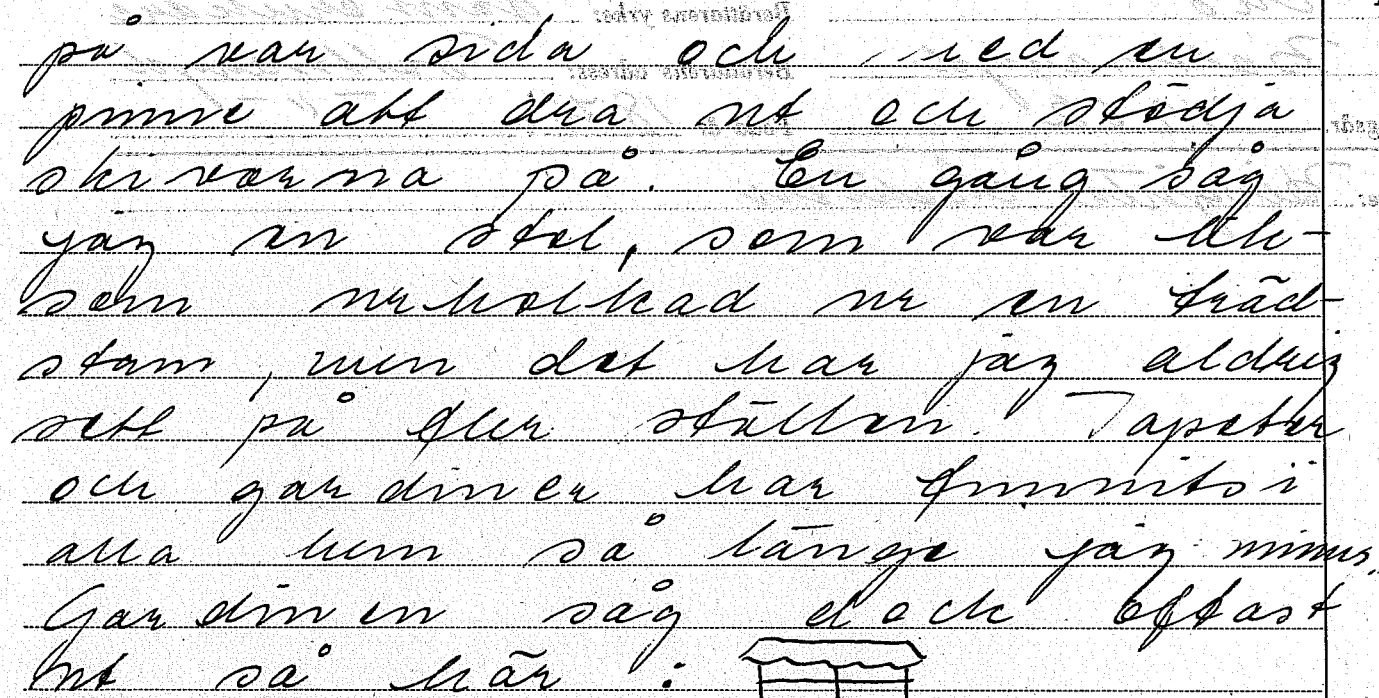 på var sida och med en
pinne att dra ut och stödja
skivorna på. En gång såg
jag en stol, som var lik-
som urholkad ur en träd-
stam, men det har jag aldrig
sett på fler ställen. Tapeter
och gardiner har funnits i
alla hem så länge jag minns.
Gardinen såg dock oftast
ut så här :